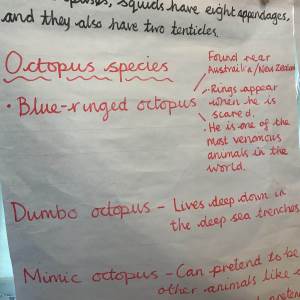 squids have eight appendages,
and they also have two tenticles.
Octopus species
Found near
Australia/New Zealand
• Blue-ringed octopus
• Rings appear
when he is
scared.
• He is one of the
most venomous
animals in the
world.
Dumbo octopus - Lives deep down in
the deep sea trenches
Mimic octopus - Can pretend to be
other animals like